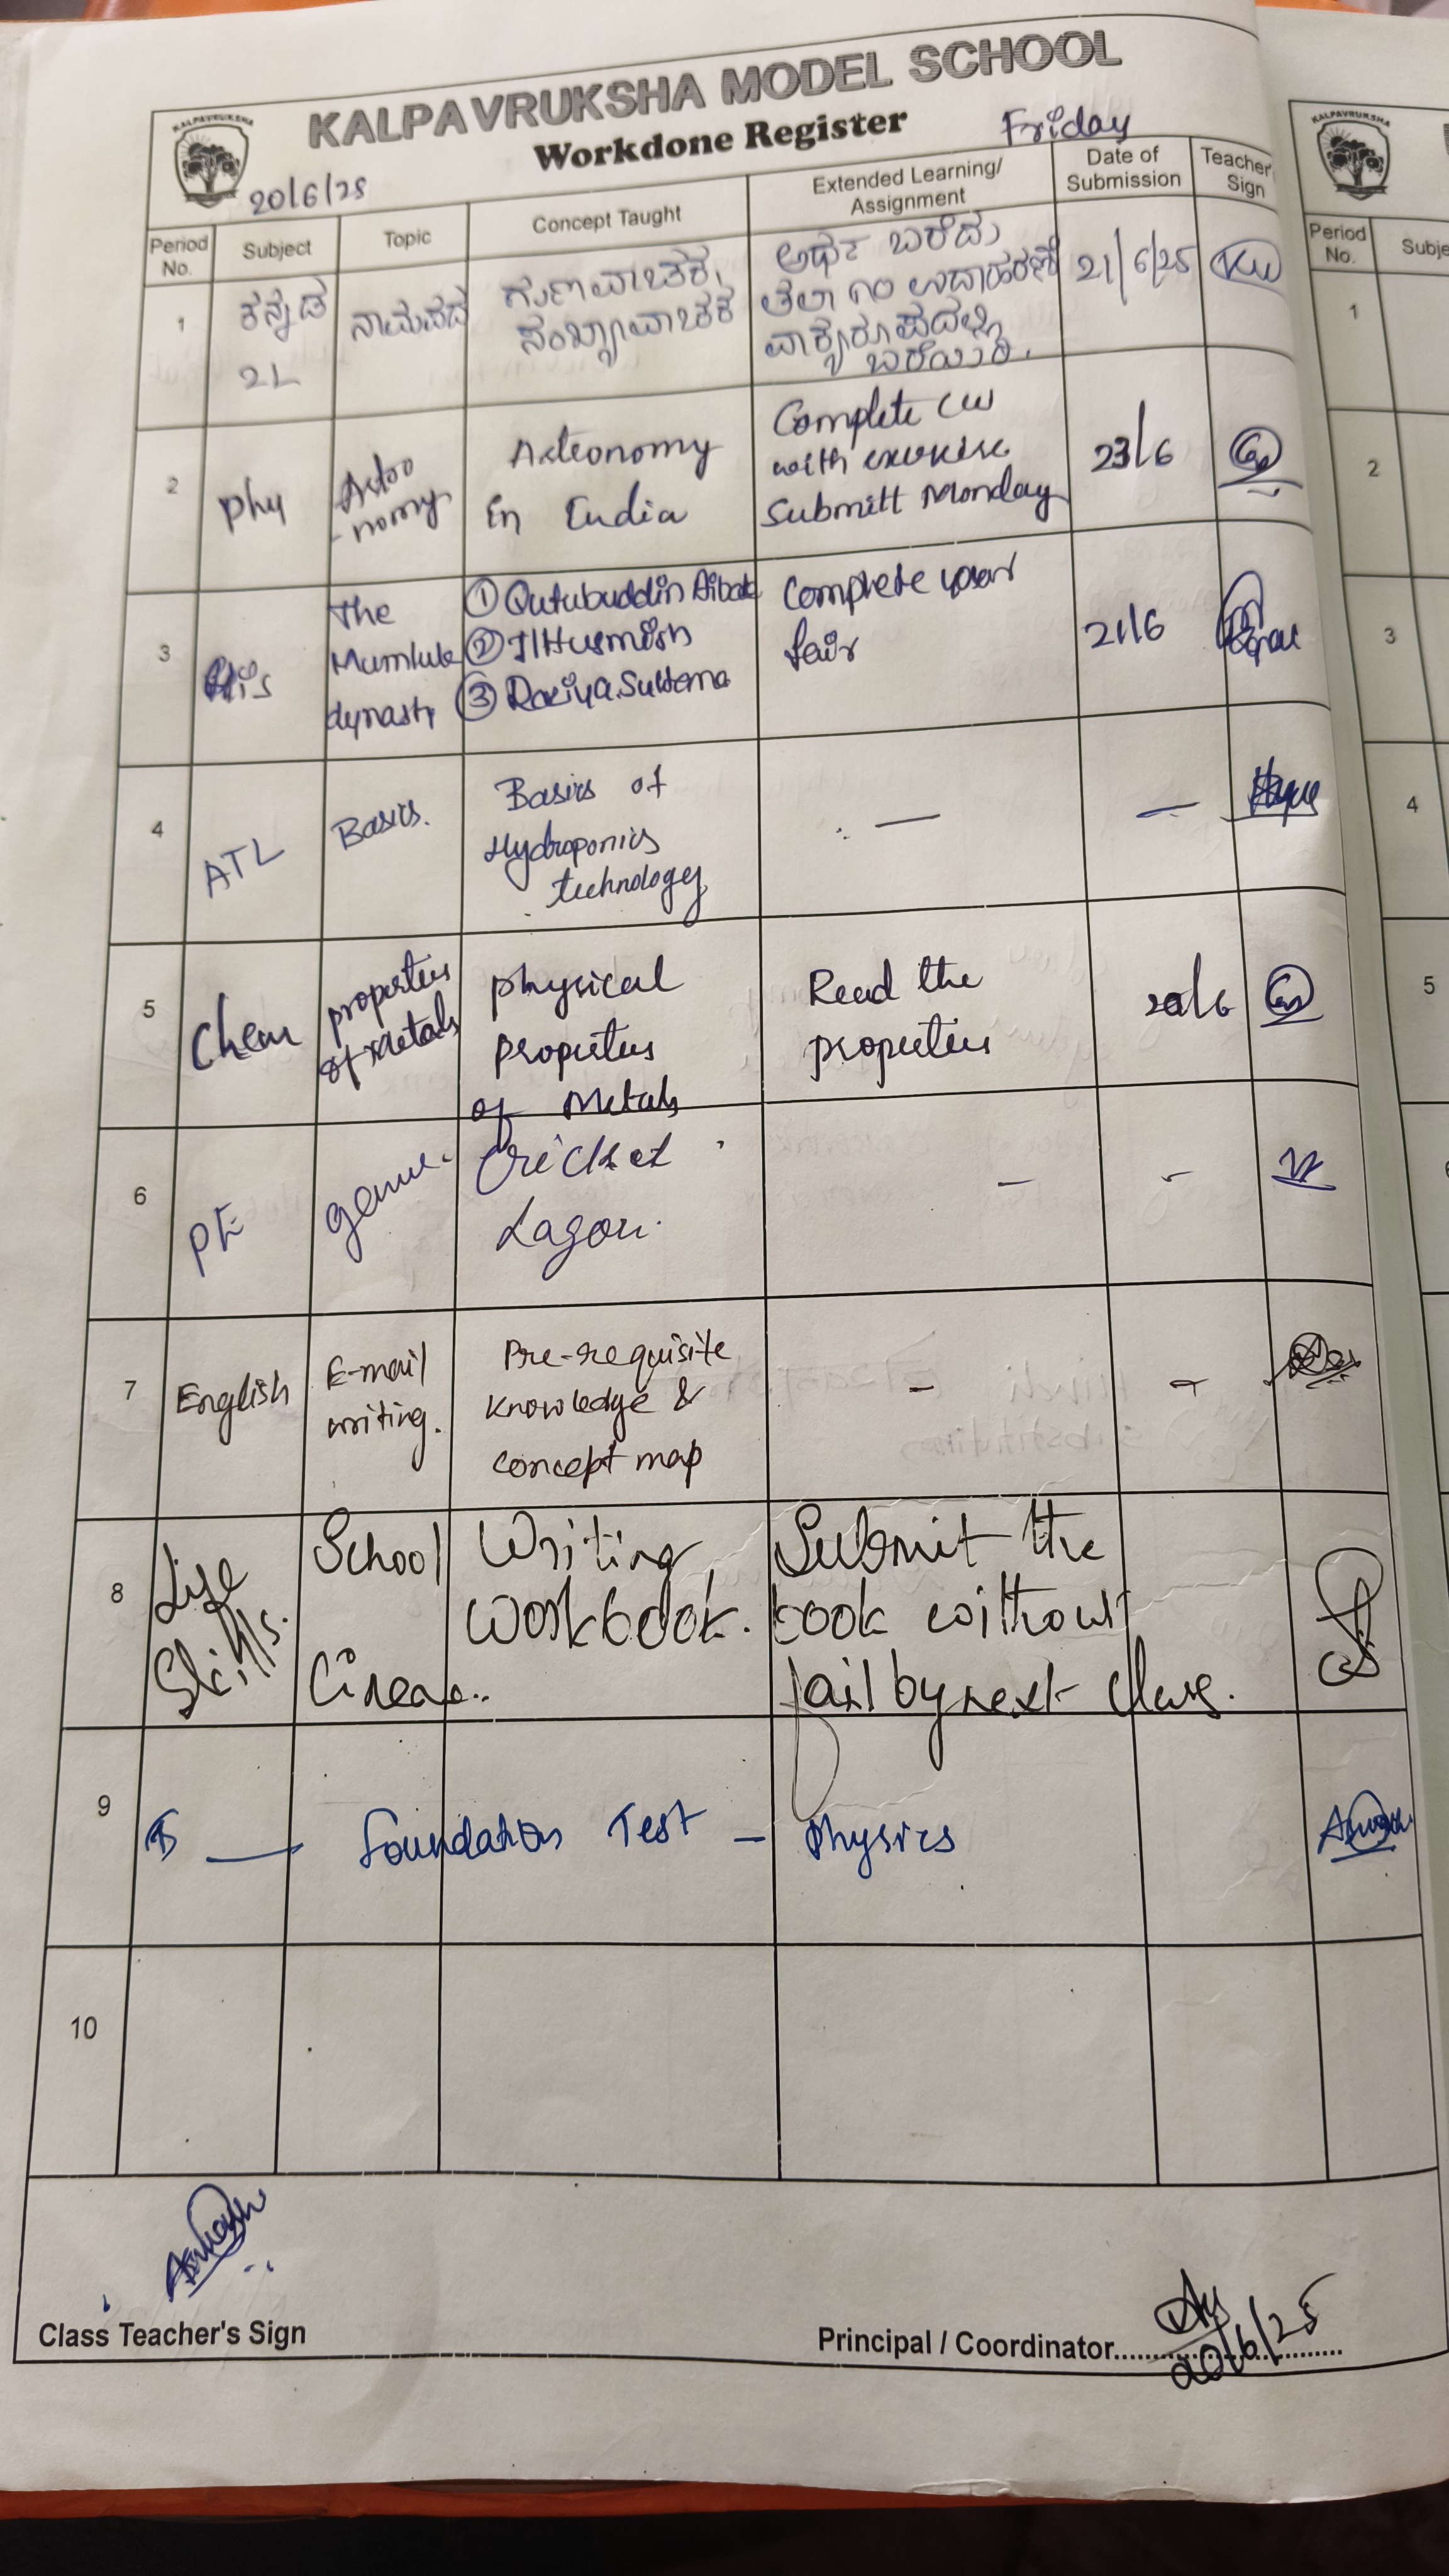 KALPAVRUKSHA MODEL SCHOOL
KALPAVRUKSHA
Workdone Register
Friday
20/6/25
Period No.
Subject
Topic
Concept Taught
Extended Learning/
Assignment
Date of
Submission
Teacher
Sign
1
ಕನ್ನಡ
2L
ನಾಮಪದ
ಗುಣವಾಚಕ,
ಸಂಖ್ಯಾವಾಚಕ
ಅರ್ಥ ಬರೆದು
ತಲಾ ೧೦ ಉದಾಹರಣೆ
ವಾಕ್ಯರೂಪದಲ್ಲಿ
ಬರೆಯಿರಿ.
21/6/25
2
Phy
Astro
-nomy
Astronomy
in India
Complete CW
with exercise
Submitt Monday
23/6
3
His
The
Mamluk
dynasty
① Qutubuddin Aibak
② Iltutmish
③ Raziya Sultana
Complete your
fair
21/6
4
ATL
Basics.
Basics of
Hydroponics
technology
—
—
5
Chem
properties
of Metals
physical
properties
of Metals
Read the
properties
20/6
6
PE
game.
Cricket
Lagori.
–
–
7
English
E-mail
writing.
Pre-requisite
knowledge &
concept map
–
–
8
Life
Skills.
School
Writing
workbook.
Submit the
book without
fail by next class.
9
— Foundation Test – Physics
10
Class Teacher's Sign
Principal / Coordinator
20/6/25
KALPAVRUKSHA
Period
No.
Subje
1
2
3
4
5